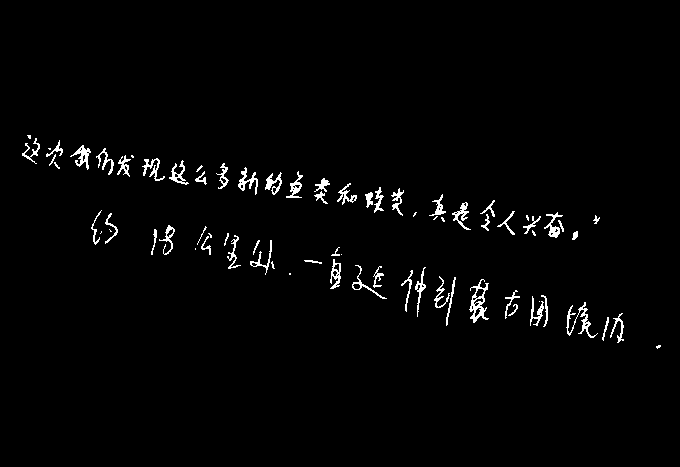 这次我们发现这么多新的鱼类和蛙类,真是令人兴奋。"
约 18 公里处.一直延伸到蒙古国境内.